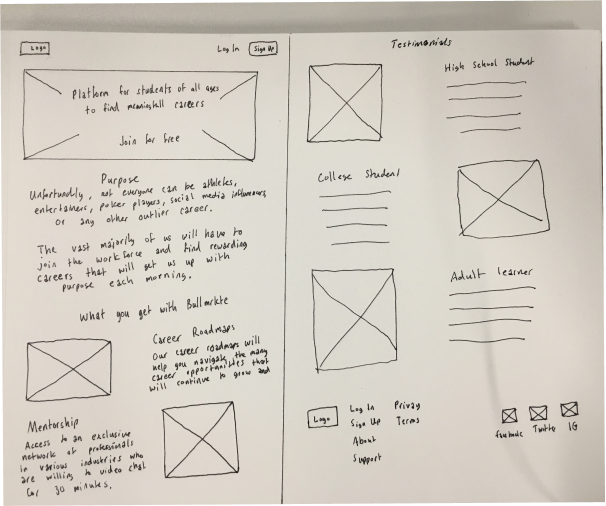 Logo
Log In
Sign Up
Platform for students of all ages
to find meaningfull careers
Join for free
Purpose
not everyone can be athletes,
entertainers, poker players, social media influencers
or any other outlier career.
The vast majority of us will have to
join the workforce and find rewarding
careers that will get us up with
purpose each morning.
What you get with
Career Roadmaps
Our career roadmaps will
help you navigate the many
career opportunities that
will continue to grow and
Mentorship
Access to an exclusive
network of professionals
in various industries who
are willing to video chat
for 30 minutes.
Testimonials
High School Student
College Student
Adult learner
Logo
Log In
Sign Up
About
Support
Privay
Terms
IG